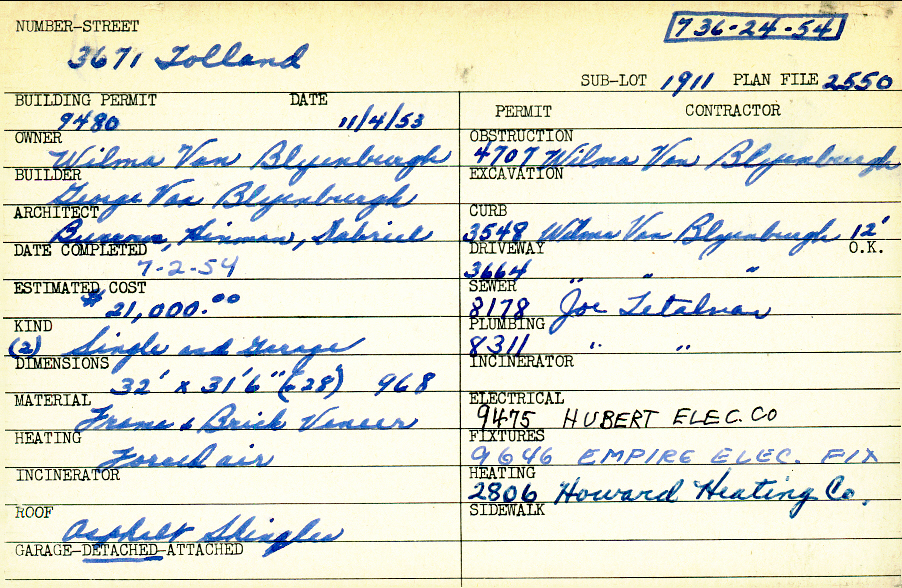 NUMBER-STREET
736-24-54
3671 Tolland
SUB-LOT 1911 PLAN FILE 2550
BUILDING PERMIT DATE
9480 11/4/53
OWNER
Wilma Van Blyenburgh
BUILDER
George Van Blyenburgh
ARCHITECT
Hinman, Gabriel
DATE COMPLETED
7-2-54
ESTIMATED COST
$21,000.00
KIND
(2) Single and Garage
DIMENSIONS
32' x 31'6" 968
MATERIAL
Frame & Brick Veneer
HEATING
Forced air
INCINERATOR
ROOF
Asphalt Shingles
GARAGE-DETACHED-ATTACHED
PERMIT CONTRACTOR
OBSTRUCTION
4707 Wilma Van Blyenburgh
EXCAVATION
CURB
3548 Wilma Van Blyenburgh 12'
DRIVEWAY O.K.
3664 " " "
SEWER
8178 Joe
PLUMBING
8311 " "
INCINERATOR
ELECTRICAL
9475 HUBERT ELEC. CO
FIXTURES
9646 EMPIRE ELEC. FIX
HEATING
2806 Howard Heating Co.
SIDEWALK